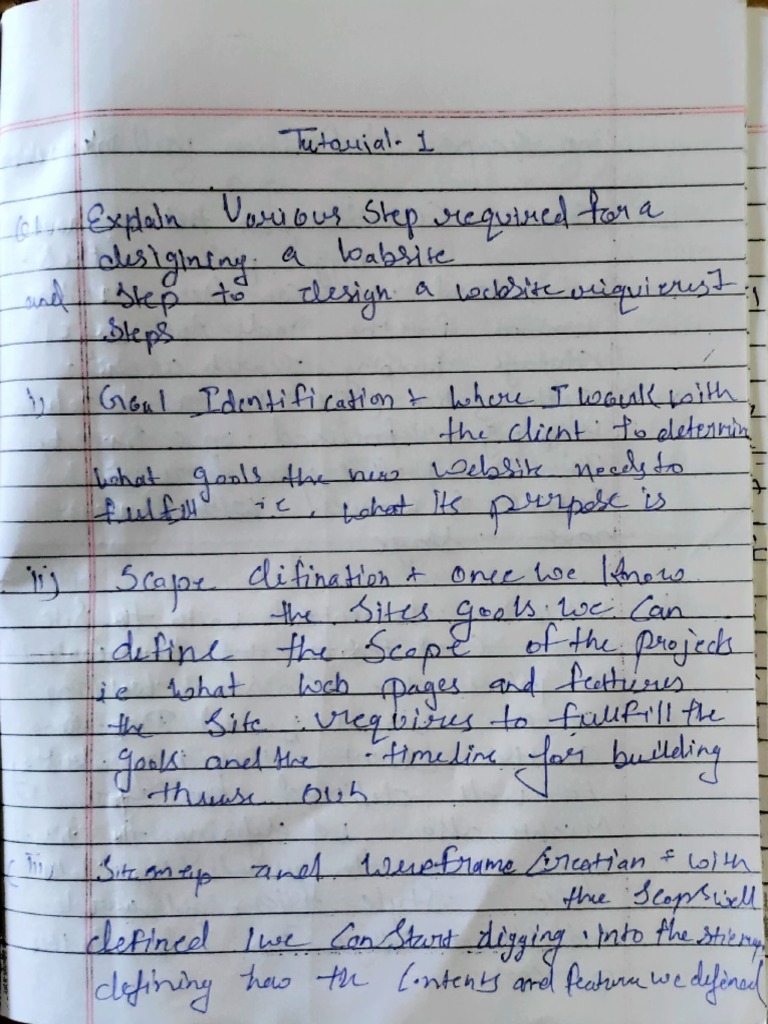 Tutorial- 1
Q1. Explain Various Step required for a
designing a website
and Step to design a website requires 7
steps
i) Goal Identification : where I work with
the client to determin
what goals the new website needs to
fulfill i.e, what its purpose is
ii) Scope difination : once we know
the sites goals we can
define the Scope of the projects
i.e what web pages and feattures
the Site requires to fullfill the
goals and the timeline for building
those out
iii) Sitemap and wireframe Creation : with
the scope well
defined we can Start digging into the sitemap
defining how the Contents and feature we defined